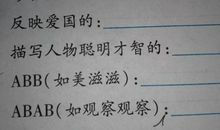 反映爱国的:
描写人物聪明才智的:
ABB(如美滋滋):
ABAB(如观察观察):